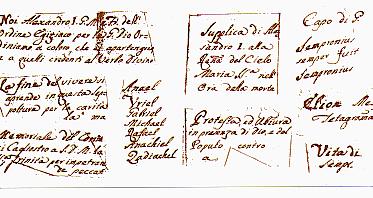 Noi Alessandro I. G. M. tti dell'
Ordine Egizziano per G. Dio Or
diniamo a coloro, che si appartengo
a quelli credenti al Verbo Divino
La fine del vivere si
aprenda in questa Se
poltura per la carità
la ma
Memoriale del Conte
Cagliostro a S. D. M. la
SS. Trinità per impetrare
de peccati
Anael
Vriel
Gabriel
Michael
Rafael
Anachiel
Zadiachel
Supplica di Ale
sandro I. alla
Rena del Cielo
Maria SS. nell'
Ora della morte
Protesta ed Altura
in presenza di Dio, e del
Popolo contro
a
Capo di P.
Sempronius
semper fuit
Sempronius
Elion Me
Tetagrama
Vita di
Semp.